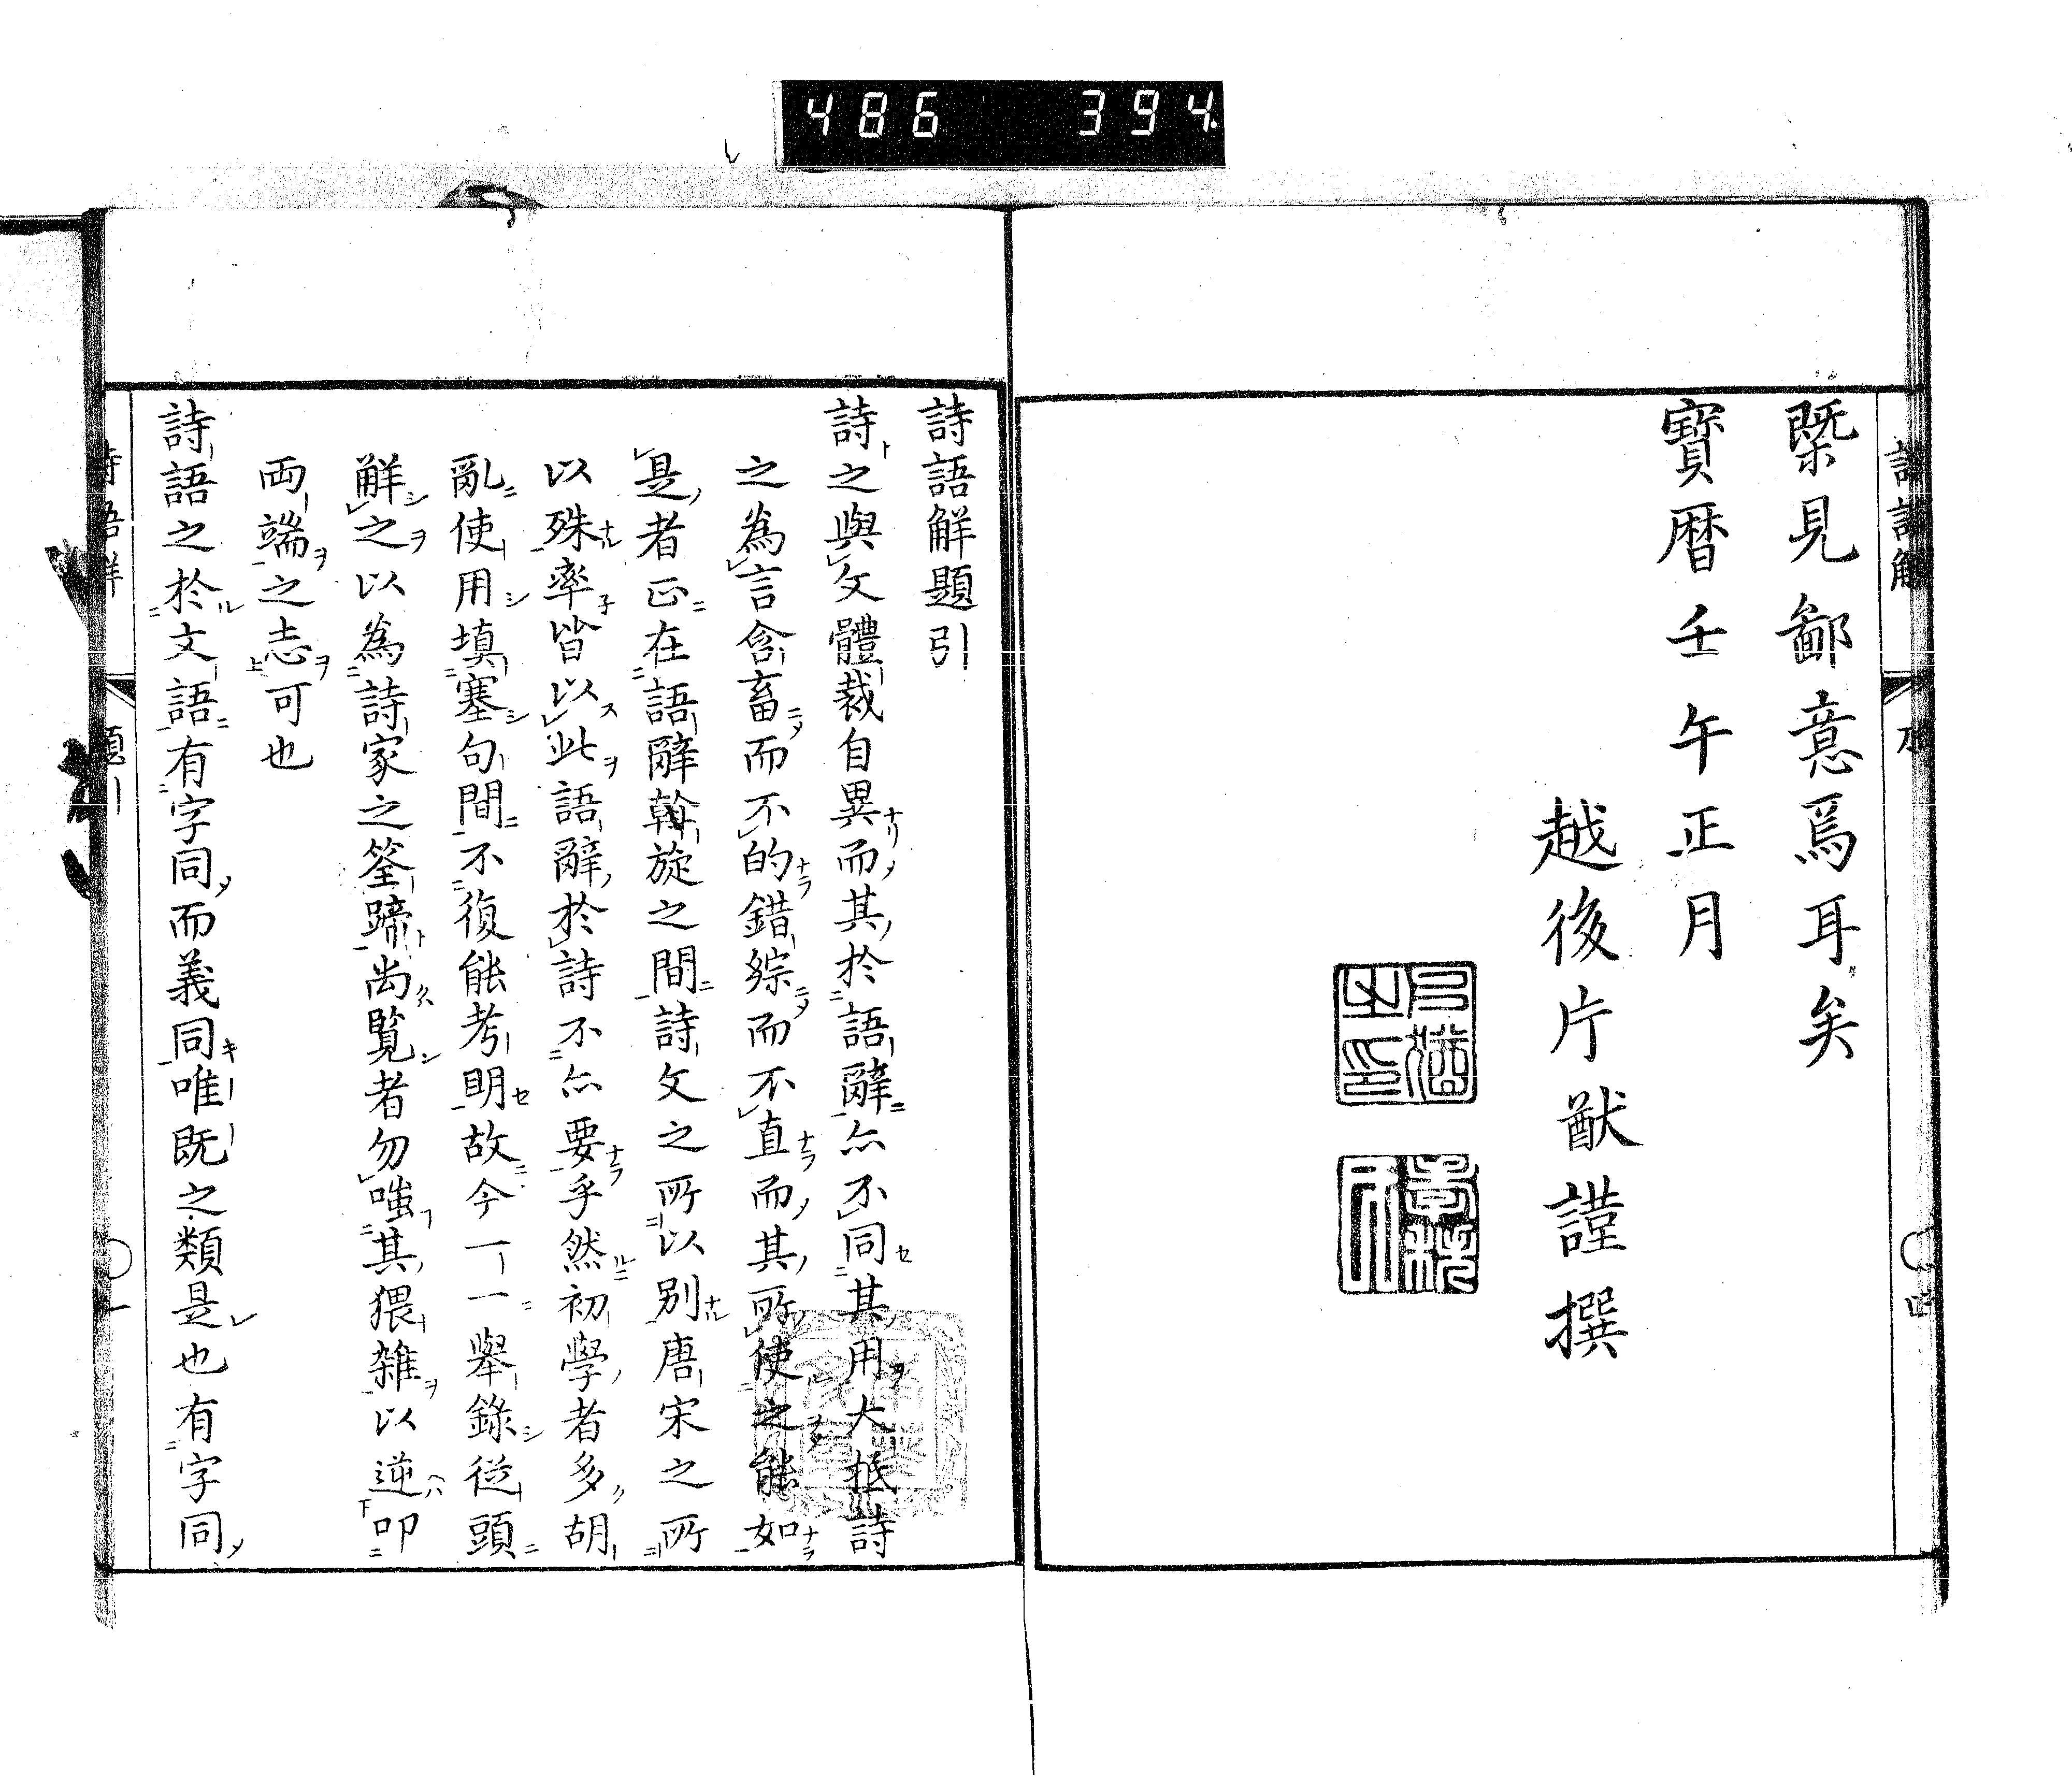 486 394
槩見鄙意焉耳矣
寳暦壬午正月
越後片猷謹撰
詩語解題引
詩之與文體裁自異而其於語辭亦不同其用大抵詩
之為言含畜而不的錯綜而不直而其所使之能如
是者正在語辭斡旋之間詩文之所以別唐宋之所
以殊率皆以此語辭於詩不亦要乎然初學者多胡
亂使用填塞句間不復能考明故今一一舉錄從頭
解之以為詩家之筌蹄尚覧者勿嗤其猥雑以逆叩
両端之志可也
詩語之於文語有字同而義同唯既之類是也有字同